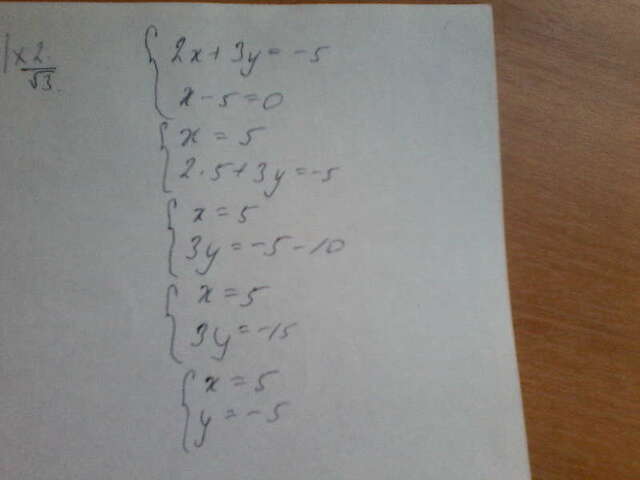 |x 2
√3.
2x+3y=-5
x-5=0
x=5
2·5+3y=-5
x=5
3y=-5-10
x=5
3y=-15
x=5
y=-5